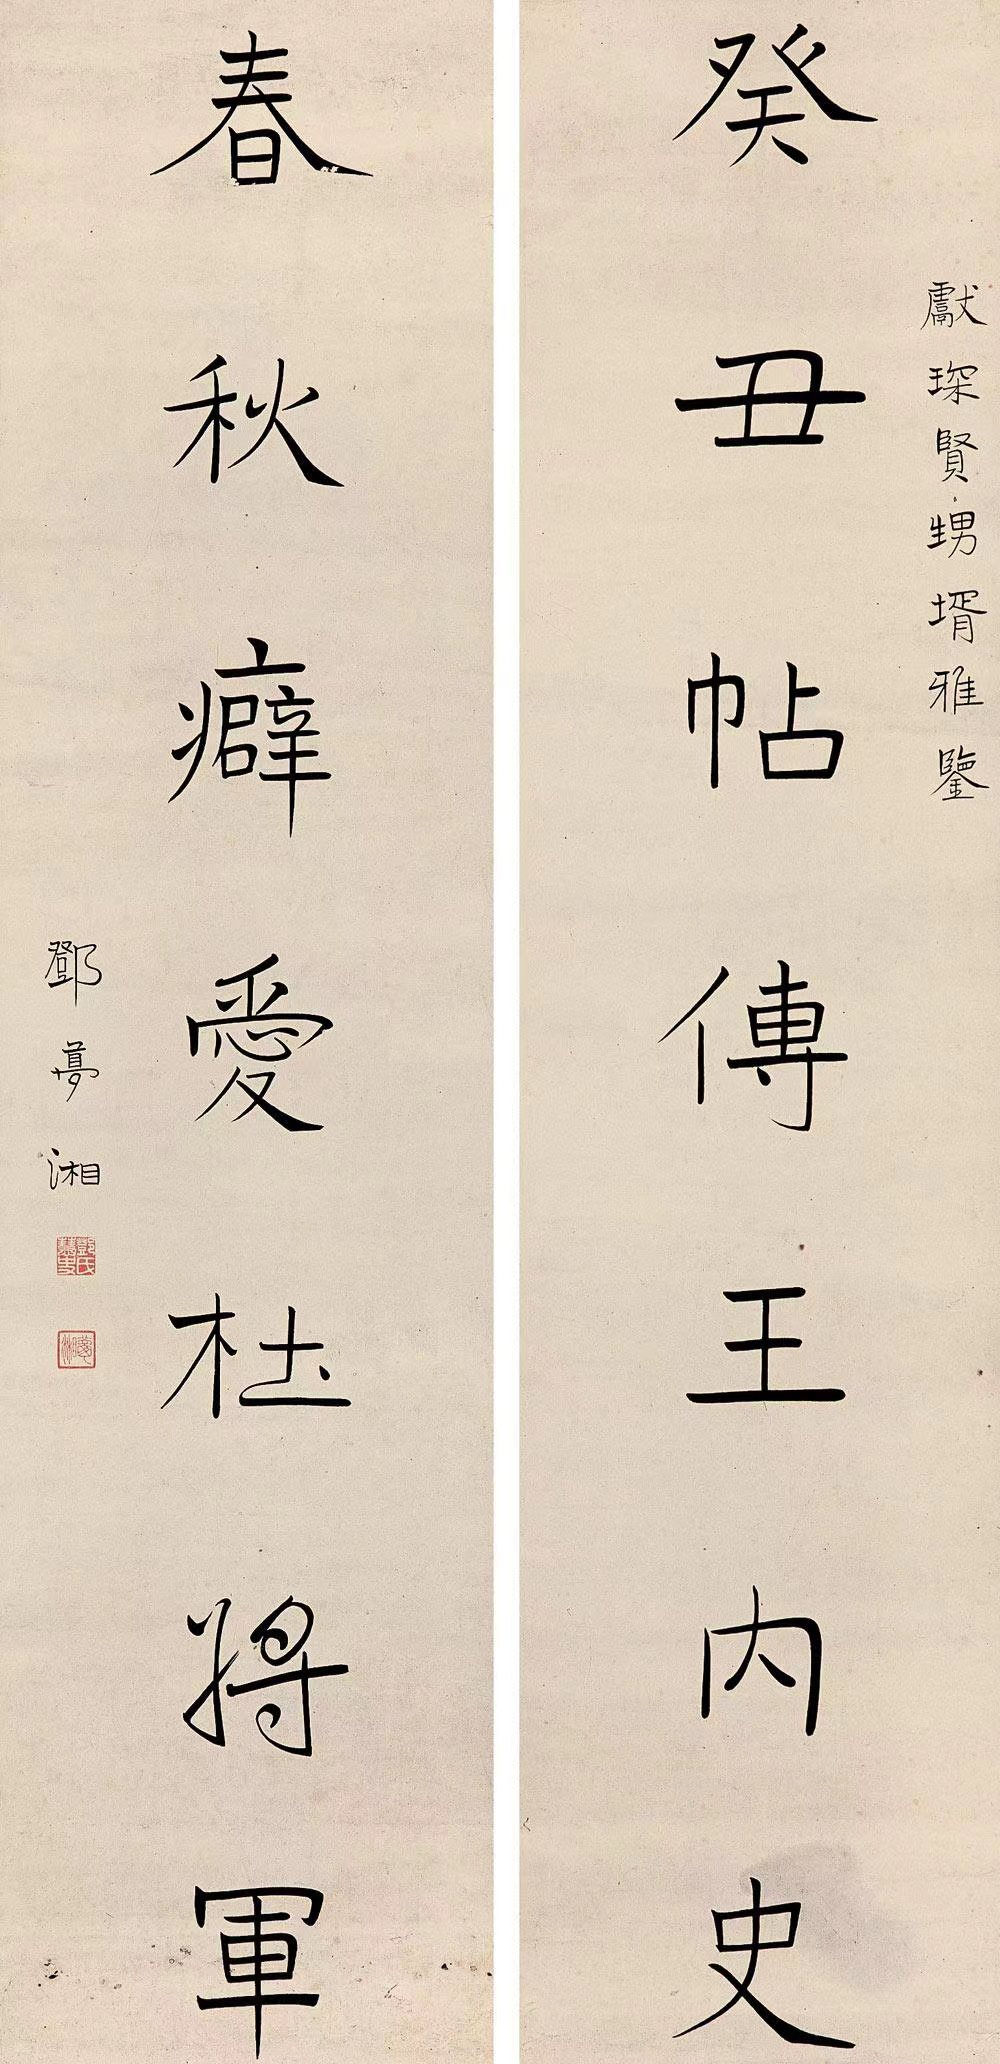 癸丑帖傳王内史
獻琛賢甥壻雅鑒
春秋癖愛杜將軍
鄧夢湘